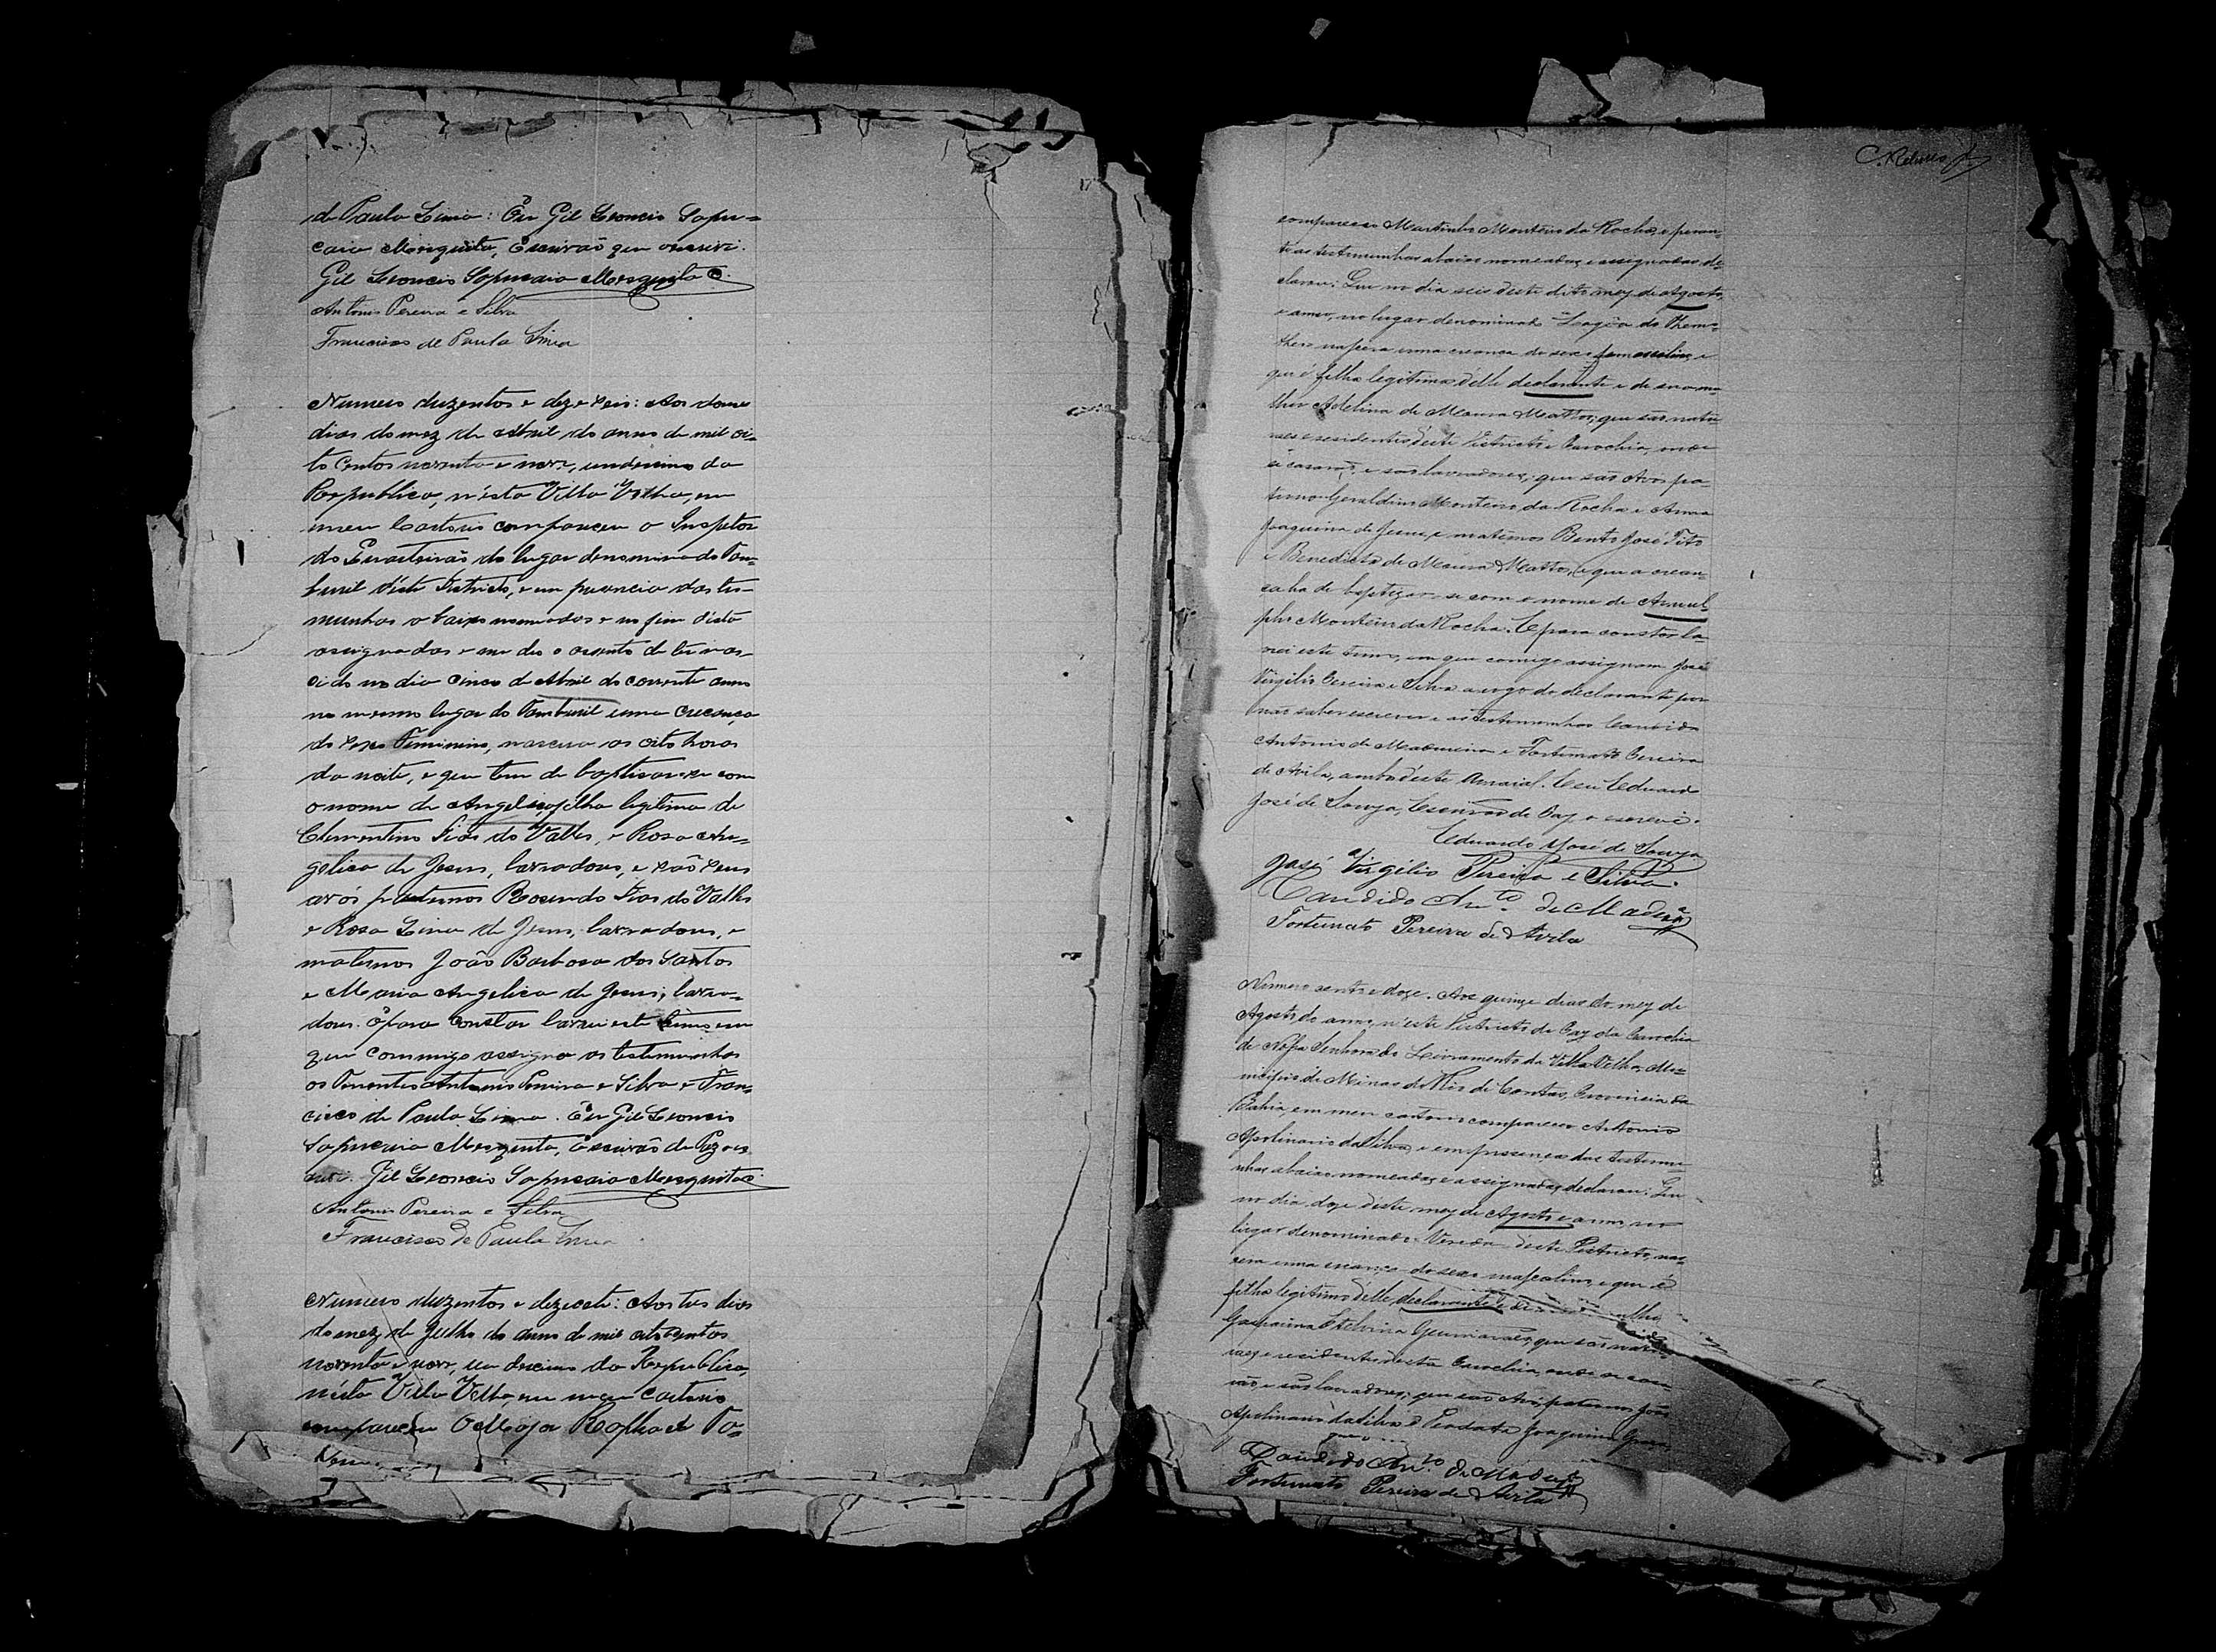 de Paula Lima: Eu Gil Leoncio Sapu-
caia Mesquita, Escrivaõ que escrivi.
Gil Leoncio Sapucaia Mesquita
Antonio Pereira e Silva
Francisco de Paula Lima
Numero duzentos e deze seis: Aos
dias do mez de Abril do anno de mil oi-
to Centos noventa e nove, undecimo da
Republica, n'esta Villa Velha, em
meu Cartorio compareceu o Inspetor
do Quarteiraõ, do lugar denominado Tam-
buril d'este Districto, e em prezencia das tes-
munhas abaixo nomiadas e no fim d'esta
assignadas
cido no dia Cinco de Abril do corrente anno
no mesmo lugar do Tamburil uma Creança
do sexo Feminino, nasceu as oito horas
da noite, e que tem de baptisar-se com
o nome de Angelica, filha legitima de
Clementino Dias do Valles, e Rosa An-
gelica de Jesus, lavradores, e saõ seus
avós paternos Rosendo Dias do Valles
e Rosa Lina de Jesus, lavradores, e
maternos João Barbosa dos Santos
e Maria Angelica de Jesus, lavra-
dores. E para constar lavrei este termo em
que commigo assigna as testemunhas
os Tenentes Antonio Pereira e Silva e Fran-
cisco de Paula Lima. Eu Gil Leoncio
Sapucaia Mesquita, Escrivaõ de Paz o es-
crivi. Gil Leoncio Sapucaia Mesquita
Antonio Pereira e Silva
Francisco de Paula Lima
Numero duzentos e dezesete: Aos tres dias
do mez de Julho do anno de mil oito Centos
noventa e nove, un decimo da Republica,
nésta Villa Velha, em meu Cartorio
compareceu O Major Raphael
compareceo Martinho Monteiro da Rocha, e peran-
te as testemunhas abaixo nomeadas, e assignadas de-
clarou: Que no dia seis deste dito mez de Agosto,
e anno, no lugar denominado Lagôa do
nascera uma creança do sexo masculino, e
que é filho legitimo d'elle declarante e de sua mu-
lher Adelina de Moura Mattos; que são natu-
raes e residentes d'este Districto e Parochia, onde
se casaraõ, e são lavradores; que são Avos pa-
ternos Geraldino Monteiro da Rocha e Anna
Joaquina de Jesus, e maternos Bento José Tito
e Benedicta de Moura Mattos, e que a crean-
ça ha de baptizar-se com o nome de Arnul-
pho Monteiro da Rocha. E para constar la-
vrei este termo, em que comigo assignam José
Virgilio Pereira e Silva a rogo do declarante por
não saber escrever e as testemunhas Candido
Antonio de Madureira e Fortunato Pereira
de Avila, ambos d'este Arraial. Eu Eduardo
José de Souza, Escrivão de Paz o escrevi.
Eduardo José de Souza
José Virgilio Pereira e Silva.
Candido An.to de Madur.a
Fortunato Pereira de Avila
Numero cento e doze. Aos quinze dias do mez de
Agosto do anno, n'este Districto de Paz da Parochia
de Nossa Senhora do Livramento da Villa Velha, Mu-
nicipio de Minas do Rio de Contas, Provincia da
Bahia, em meu cartorio compareceo Antonio
Apolinario da Silva, e em presença das testemu-
nhas abaixo nomeadas, e assignadas, declarou: Que
no dia doze d'este mez de Agosto e anno, no
lugar denominado Vereda d'este Districto, nas-
cera uma creança do sexo masculino, e que é
filho legitimo d'elle declarante e de
Etelvina Guimarães, que são
raes e residentes desta Parochia, onde se casa-
rão, e são lavradores; que são Avós paternos João
Apolinario da Silva e Joaquina
Candido An.to de Madur.a
Fortunato Pereira de Avila